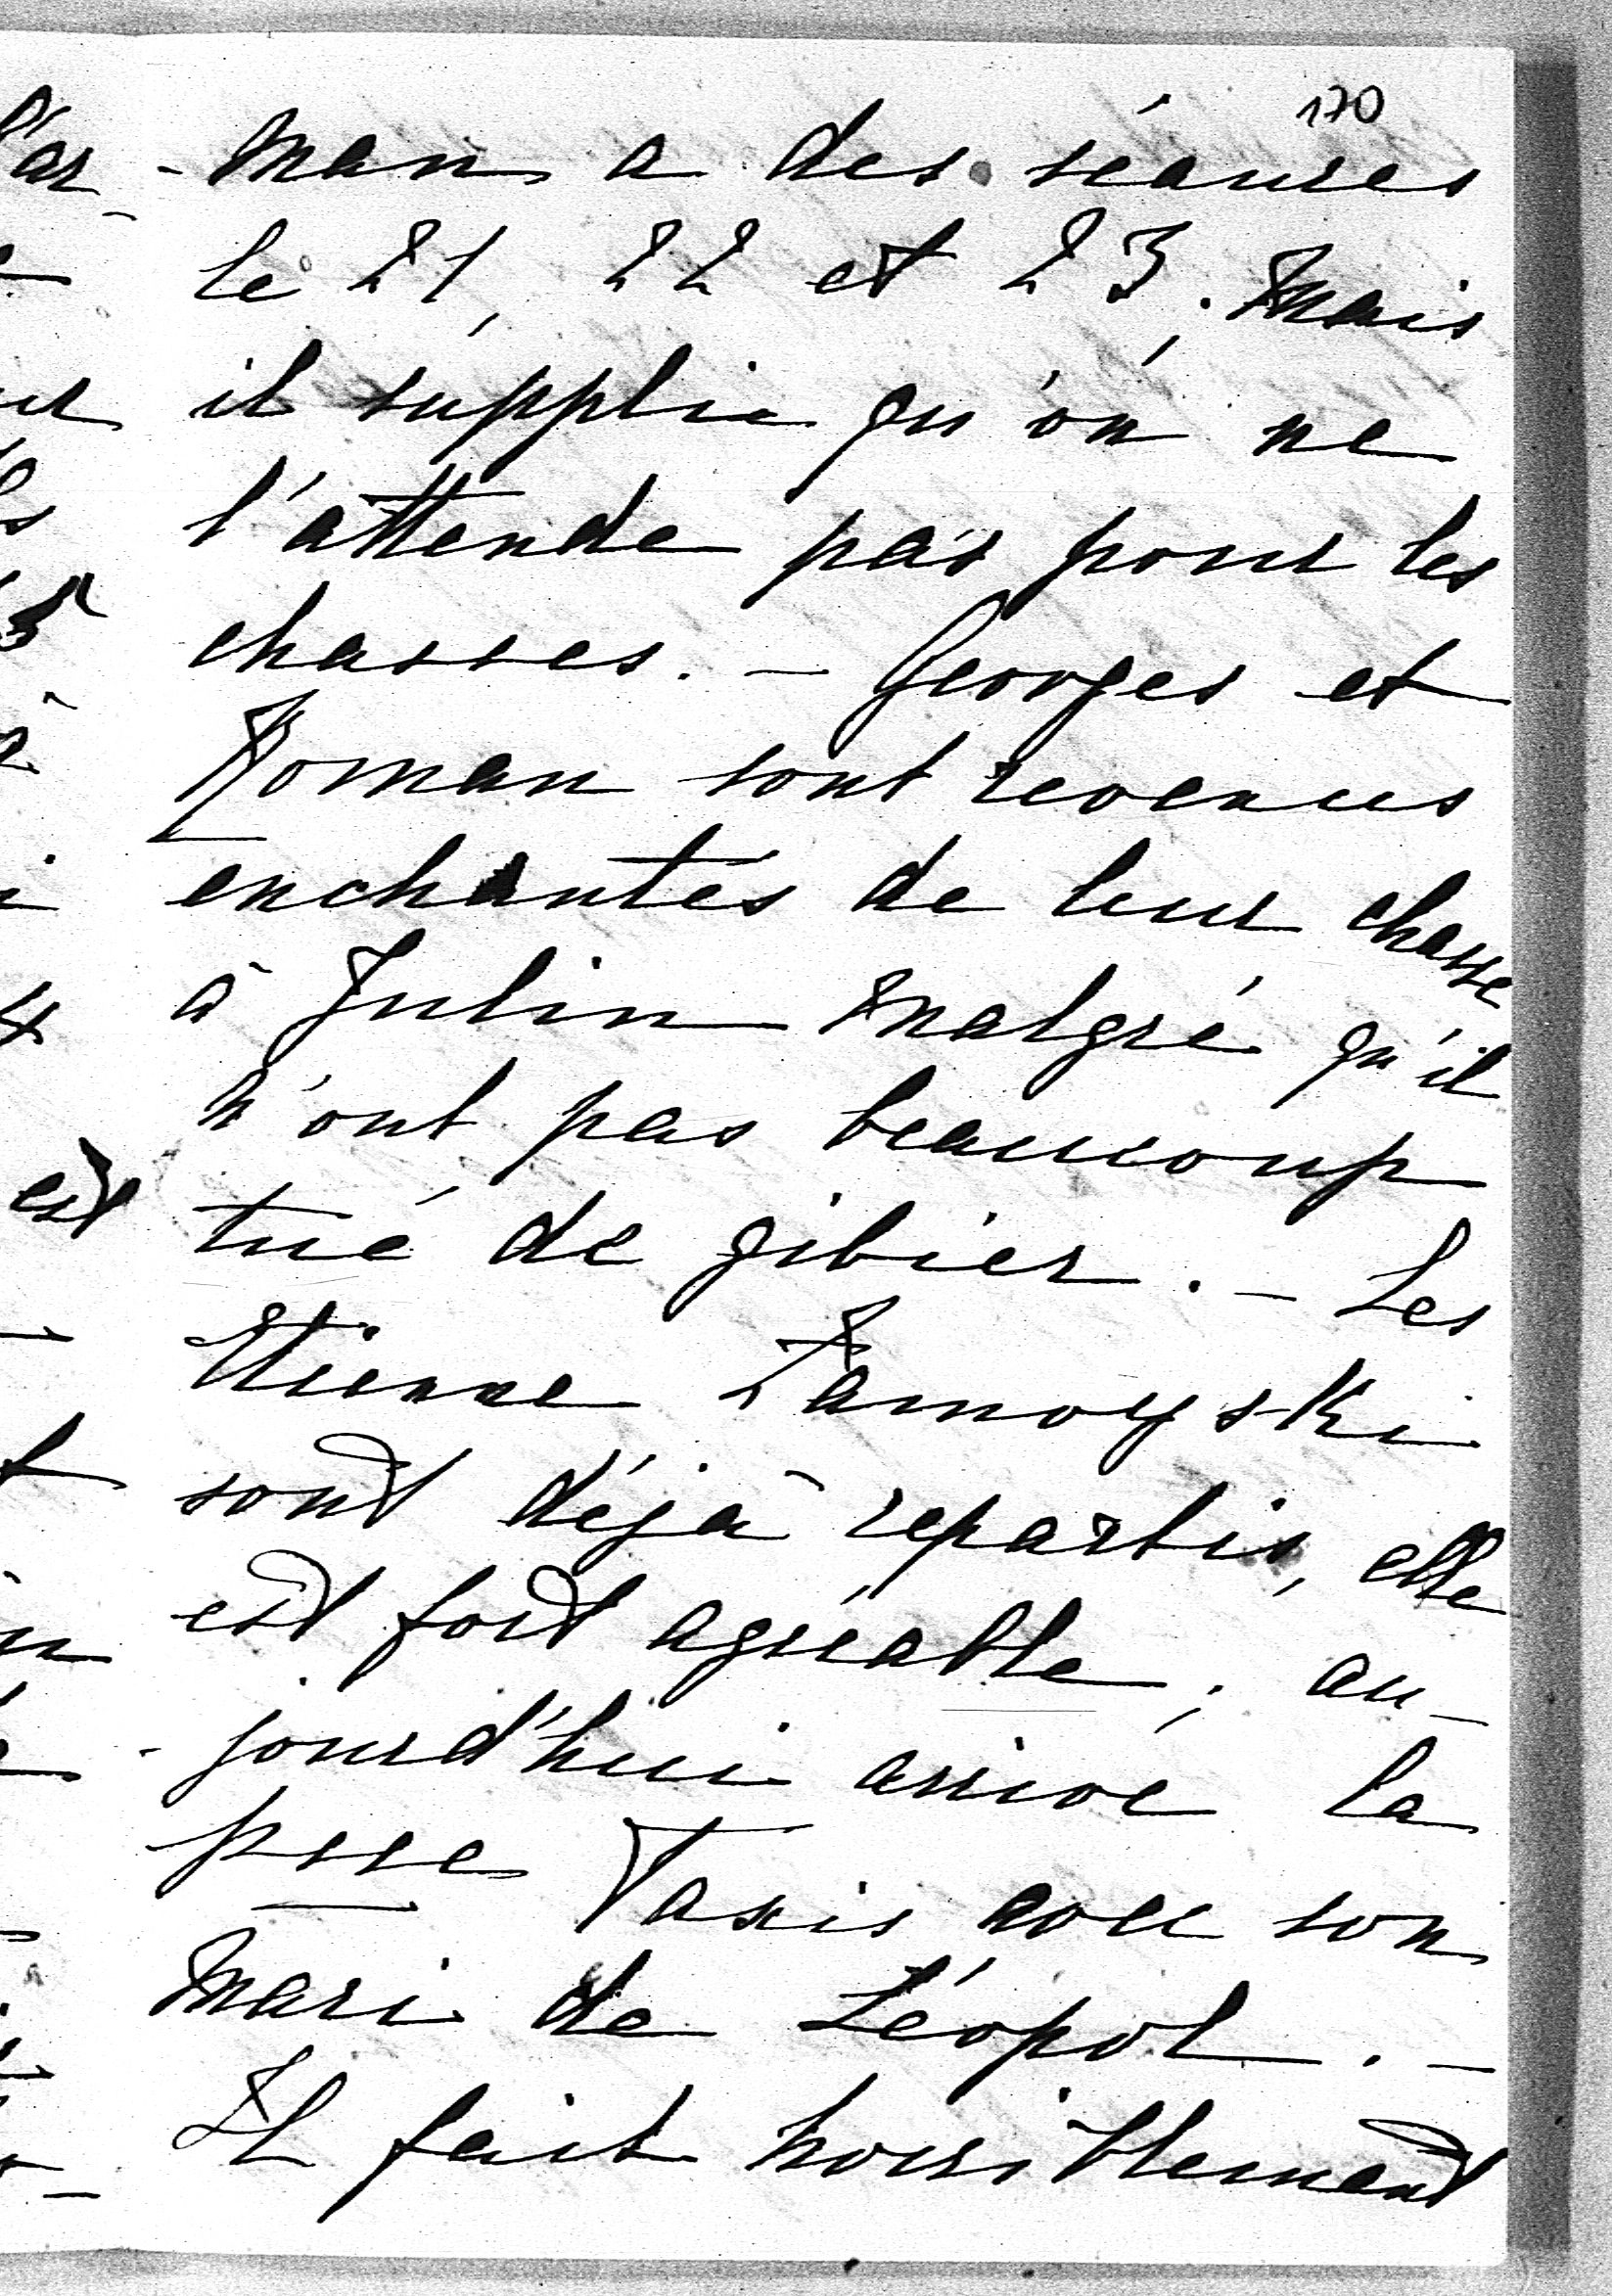 170
- man a des séances
le 21, 22 et 23, mais
il supplie qu'on ne
l'attende pas pour les
chasses. - Georges et
Roman sont revenus
enchantés de leur chasse
à Julin malgré qu'il
n'ont pas beaucoup
tué de gibier. - Les
Etienne Zamoyski
sont déjà repartis, elle
est fort agréable; au-
- jourd'hui arrive la
psse Taxis avec son
mari de Léopol. -
Il fait horriblement